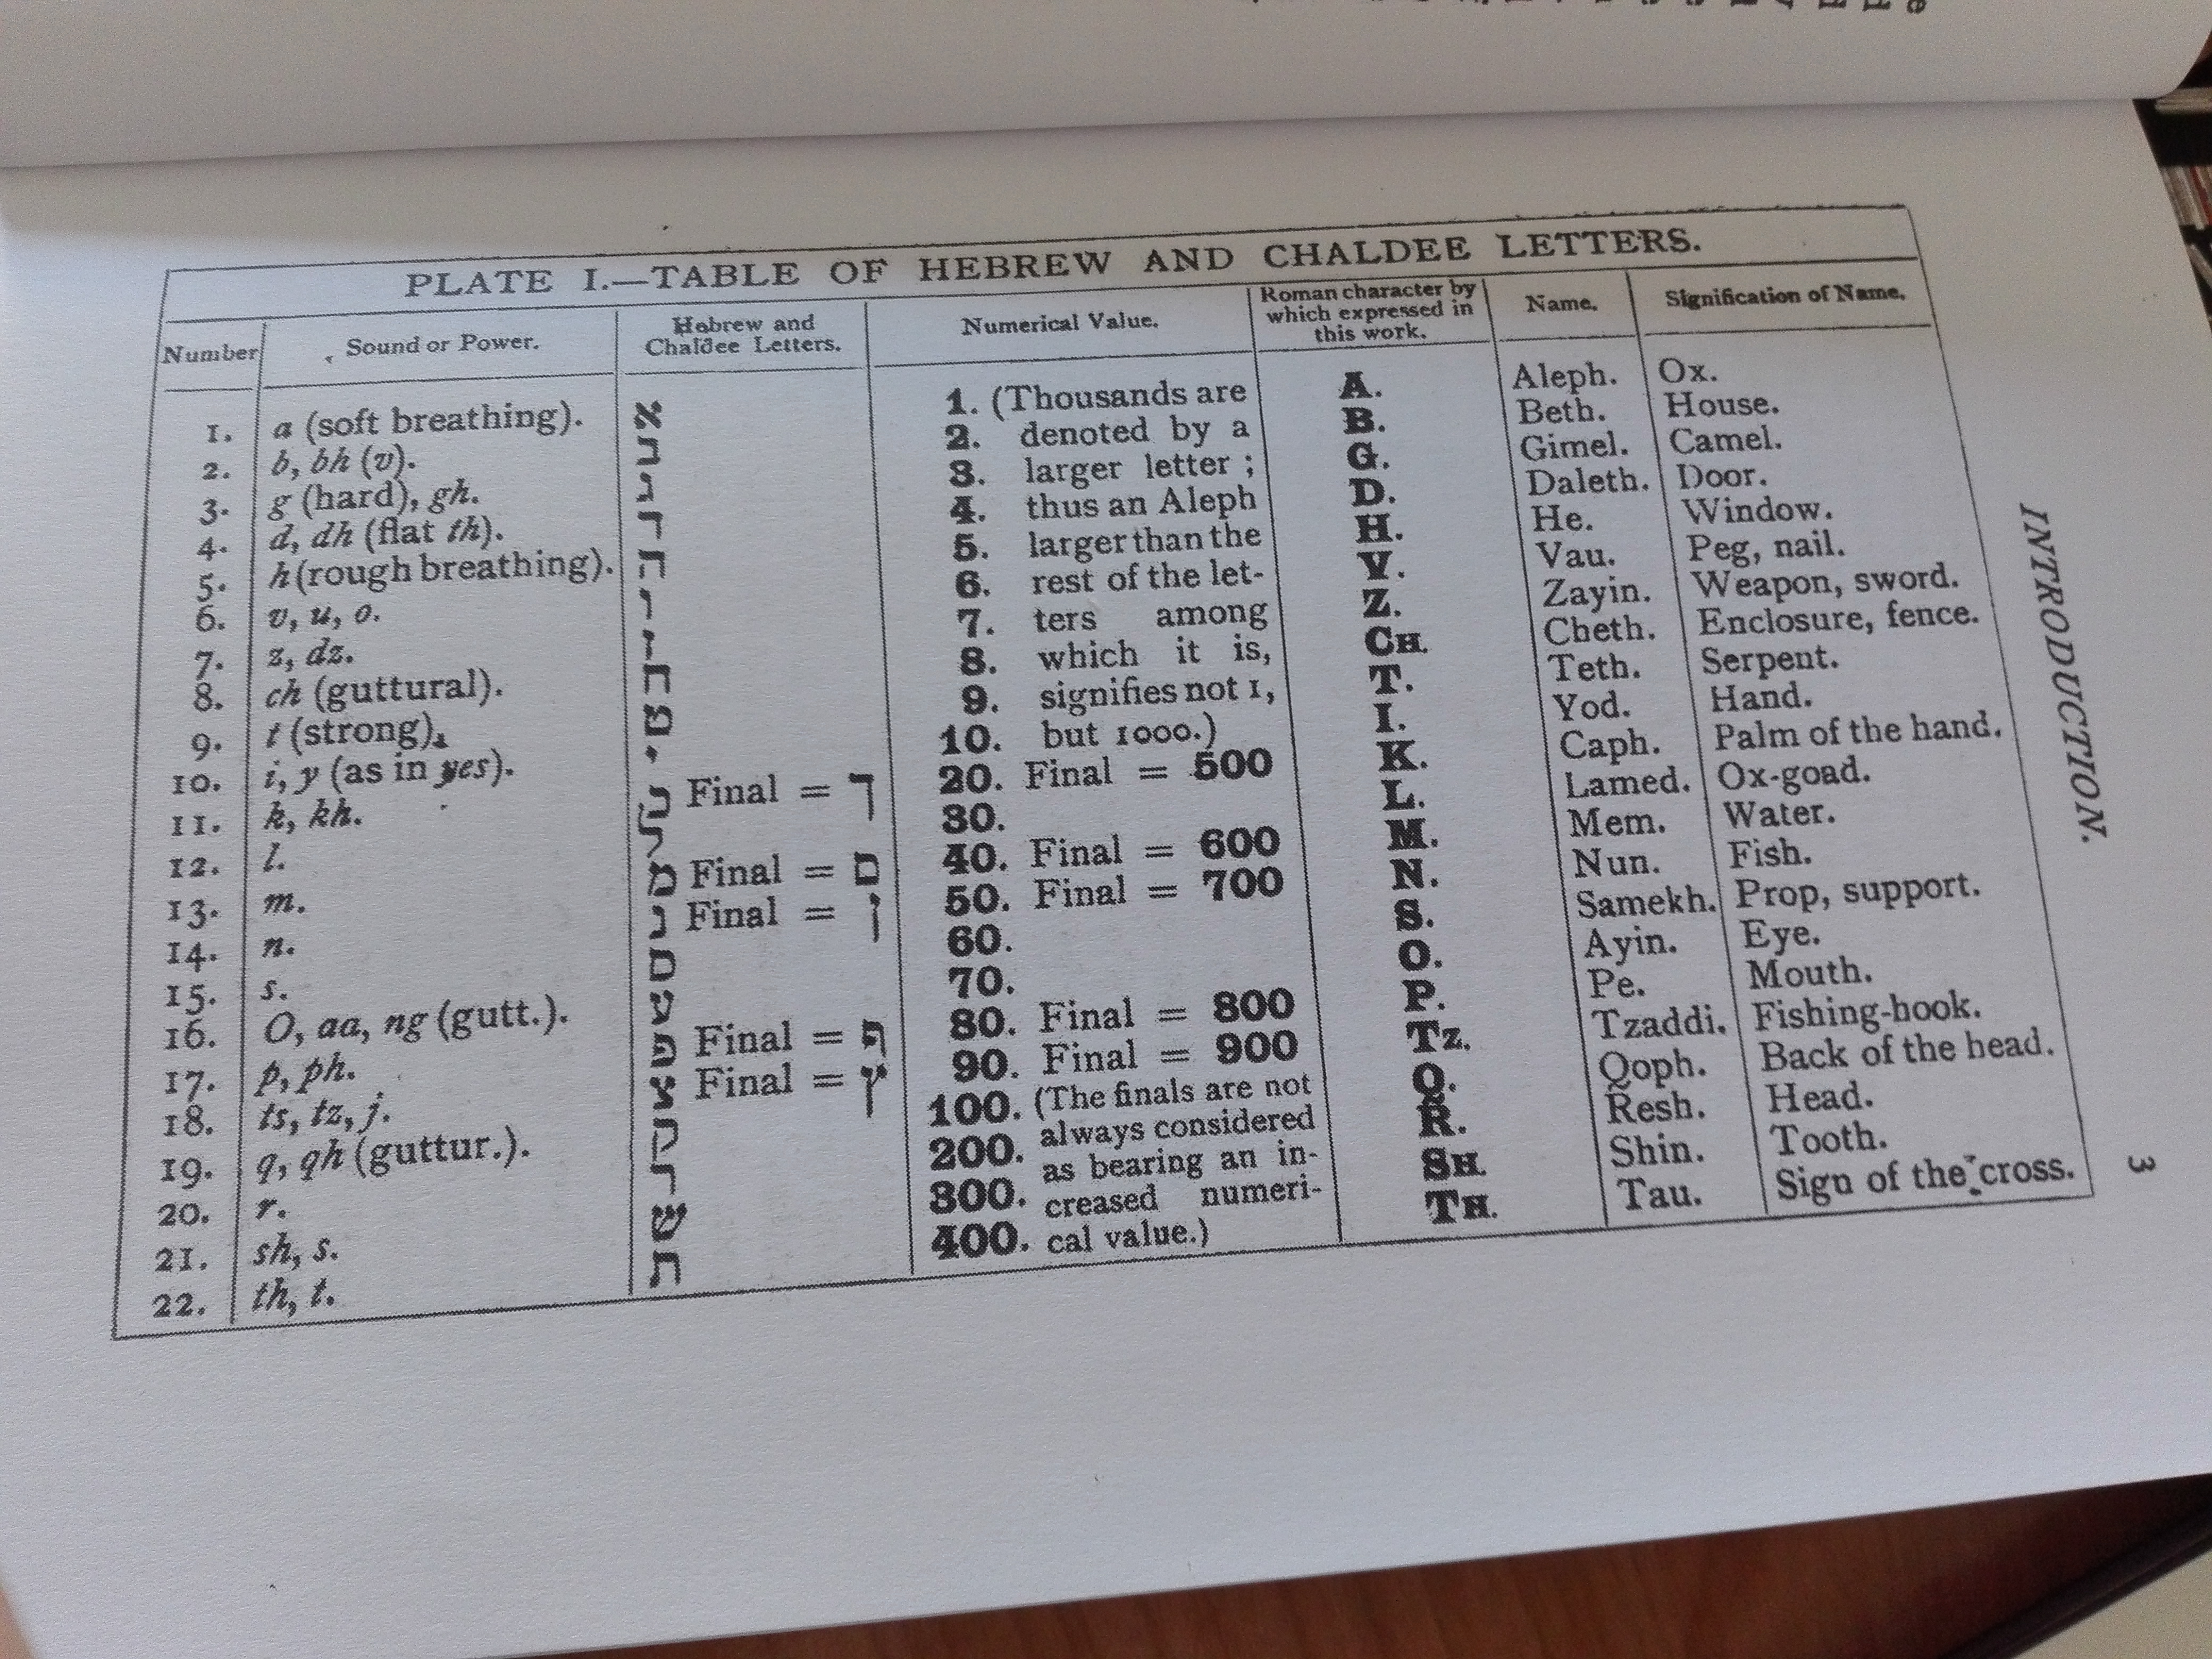 PLATE I.—TABLE OF HEBREW AND CHALDEE LETTERS.
Number Sound or Power. Hebrew and Chaldee Letters. Numerical Value. Roman character by which expressed in this work. Name. Signification of Name.
1. a (soft breathing). א 1. (Thousands are A. Aleph. Ox.
2. b, bh (v). ב 2. denoted by a B. Beth. House.
3. g (hard), gh. ג 3. larger letter; G. Gimel. Camel.
4. d, dh (flat th). ד 4. thus an Aleph D. Daleth. Door.
5. h (rough breathing). ה 5. larger than the H. He. Window.
6. v, u, o. ו 6. rest of the let- V. Vau. Peg, nail.
7. z, dz. ז 7. ters among Z. Zayin. Weapon, sword.
8. ch (guttural). ח 8. which it is, CH. Cheth. Enclosure, fence.
9. t (strong). ט 9. signifies not 1, T. Teth. Serpent.
10. i, y (as in yes). י 10. but 1000.) I. Yod. Hand.
11. k, kh. כ Final = ך 20. Final = 500 K. Caph. Palm of the hand.
12. l. ל 30. L. Lamed. Ox-goad.
13. m. מ Final = ם 40. Final = 600 M. Mem. Water.
14. n. נ Final = ן 50. Final = 700 N. Nun. Fish.
15. s. ס 60. S. Samekh. Prop, support.
16. O, aa, ng (gutt.). ע 70. O. Ayin. Eye.
17. p, ph. פ Final = ף 80. Final = 800 P. Pe. Mouth.
18. ts, tz, j. צ Final = ץ 90. Final = 900 TZ. Tzaddi. Fishing-hook.
19. q, qh (guttur.). ק 100. (The finals are not Q. Qoph. Back of the head.
20. r. ר 200. always considered R. Resh. Head.
21. sh, s. ש 300. as bearing an in- SH. Shin. Tooth.
22. th, t. ת 400. creased numeri- TH. Tau. Sign of the cross.
cal value.)
INTRODUCTION.
3